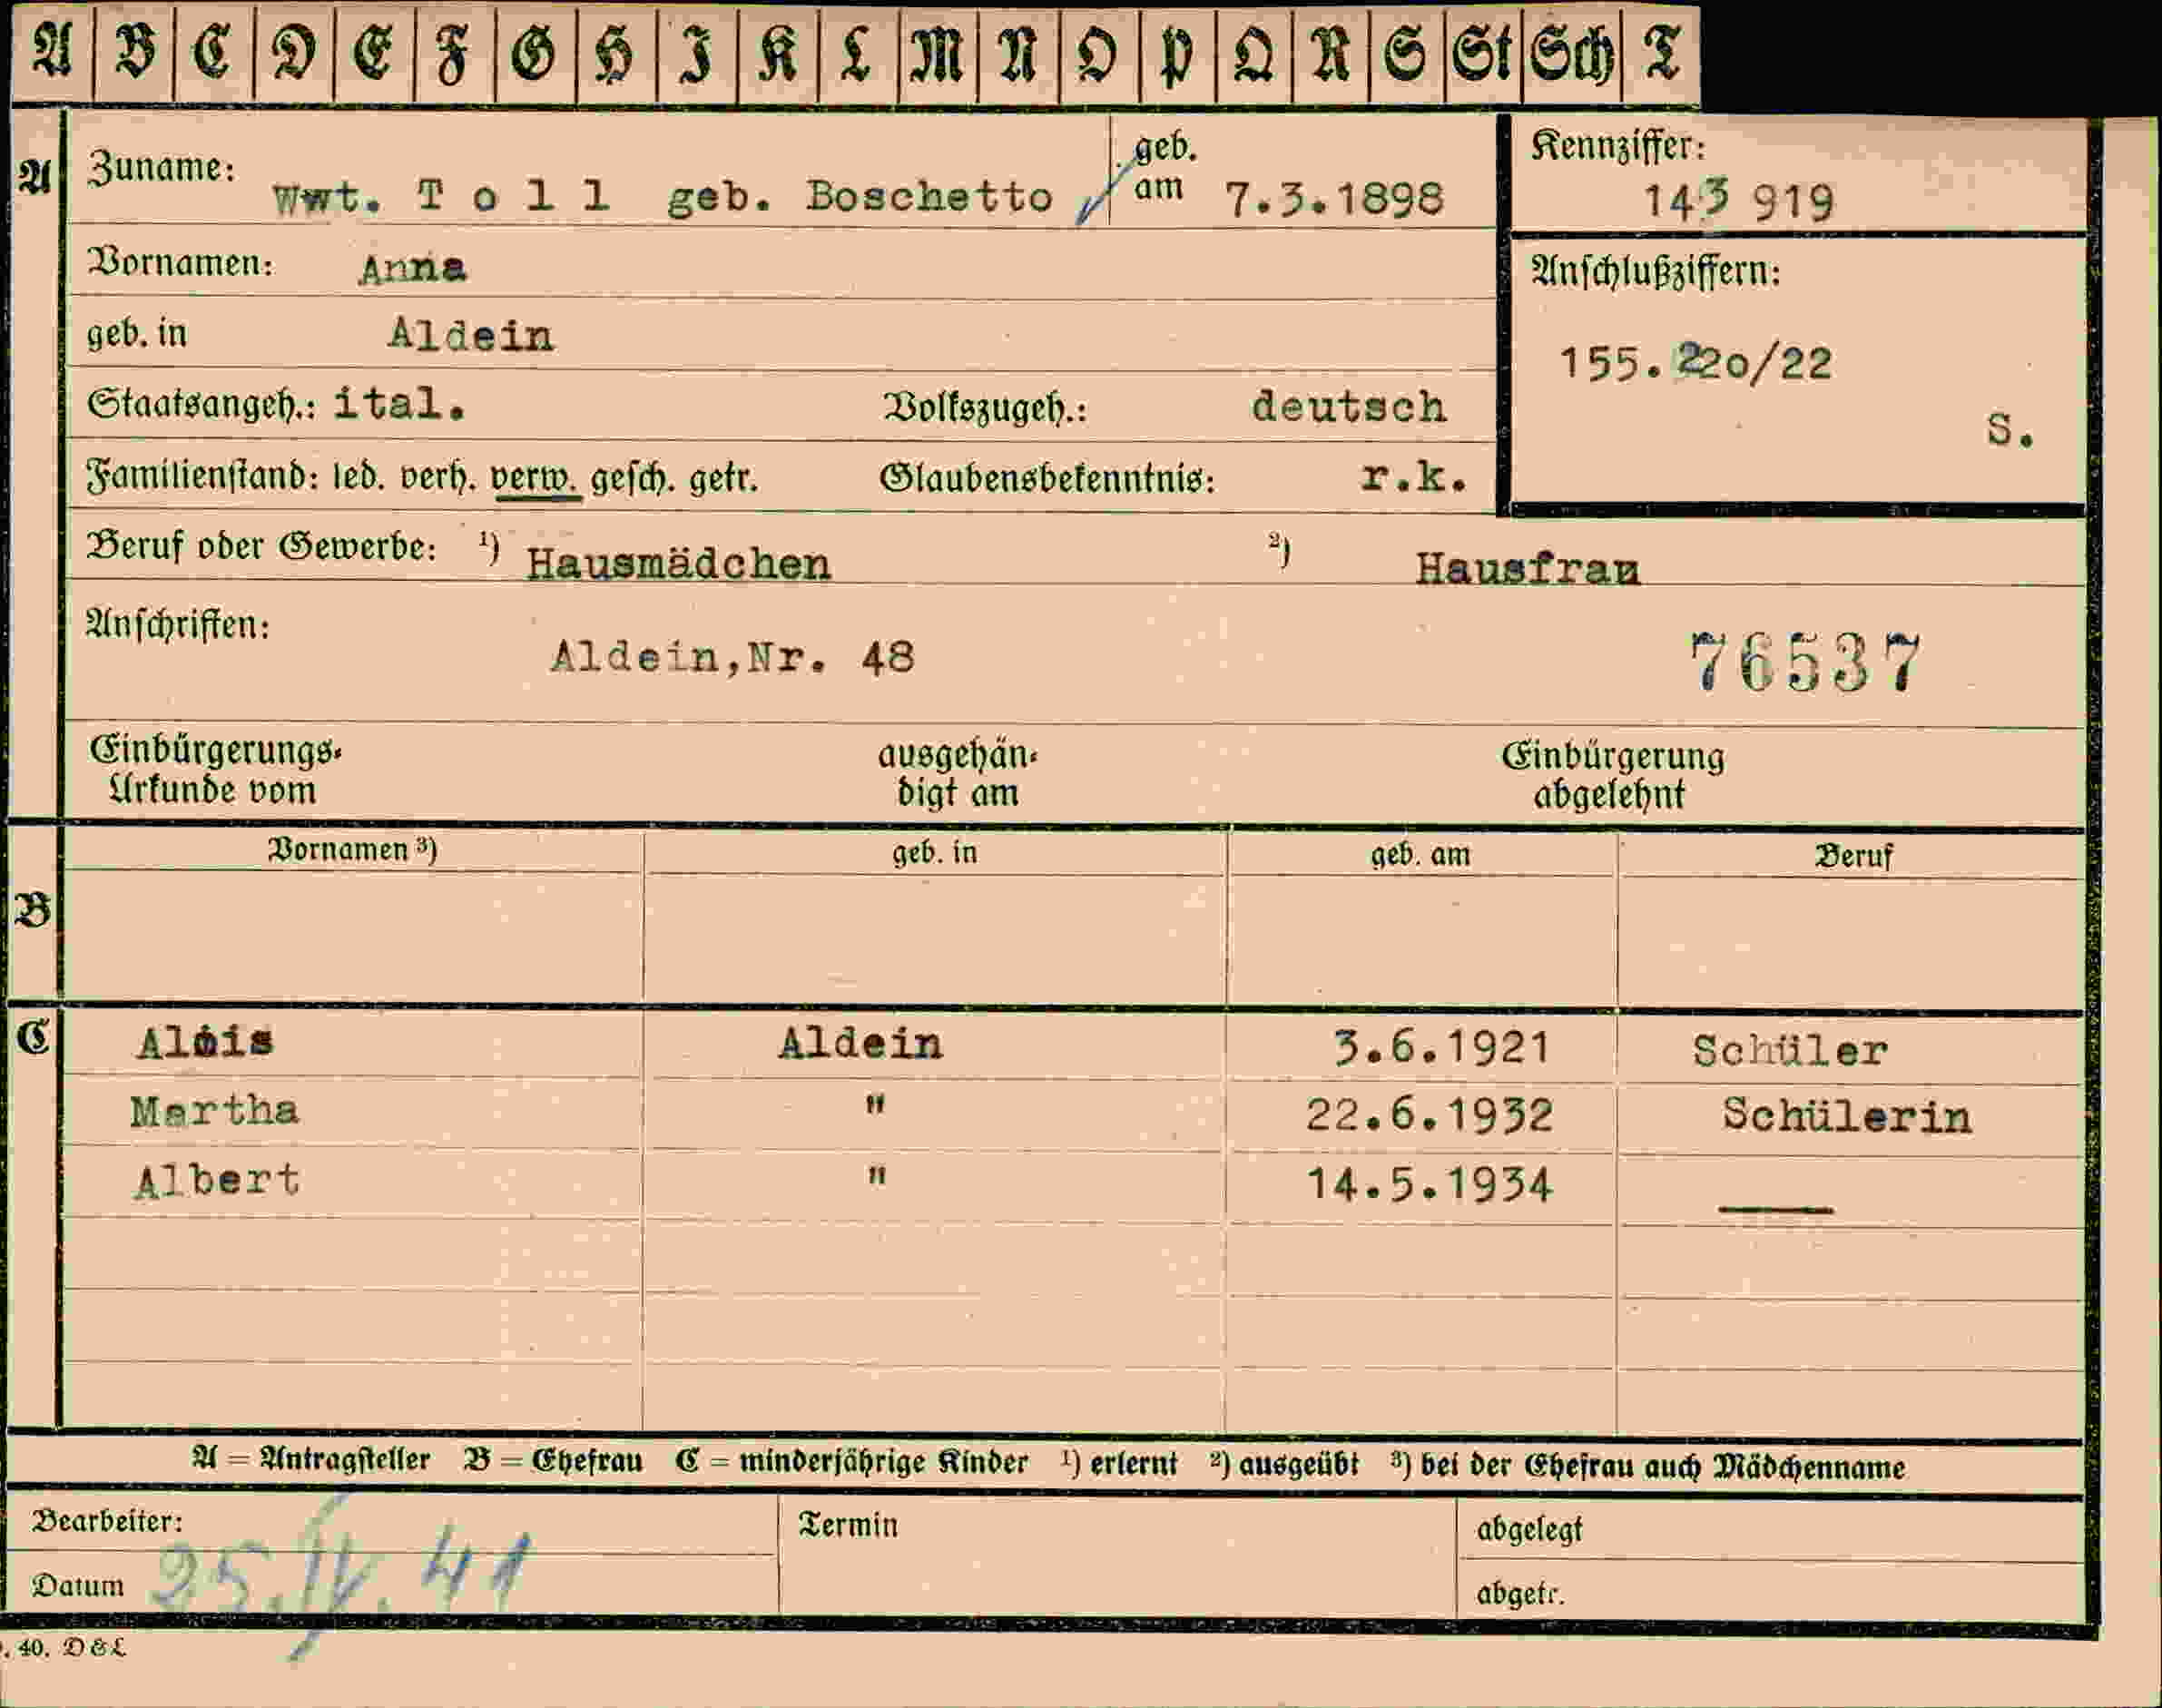 A B C D E F G H I K L M N O P Q R S St Sch T
A
Zuname: Wwt. T o l l geb. Boschetto geb. am 7.3.1898
Kennziffer: 143 919
Vornamen: Anna
geb. in Aldein
Anschlußziffern: 155.220/22 S.
Staatsangeh.: ital. Volkszugeh.: deutsch
Familienstand: led. verh. verw. gesch. getr. Glaubensbekenntnis: r.k.
Beruf oder Gewerbe: 1) Hausmädchen 2) Hausfrau
Anschriften: Aldein,Nr. 48 76537
Einbürgerungs-Urkunde vom ausgehändigt am Einbürgerung abgelehnt
Vornamen 3) geb. in geb. am Beruf
B
C Alois Aldein 3.6.1921 Schüler
Martha " 22.6.1932 Schülerin
Albert " 14.5.1934 —
A = Antragsteller B = Ehefrau C = minderjährige Kinder 1) erlernt 2) ausgeübt 3) bei der Ehefrau auch Mädchenname
Bearbeiter: Termin abgelegt
Datum 25.IV.41 abgetr.
. 40. D & L